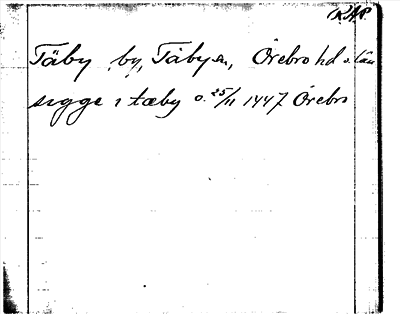 RAP.
Täby by, Täby sn, Örebro hd o. län
sigge i tæby o. 25/11 1447 Örebro